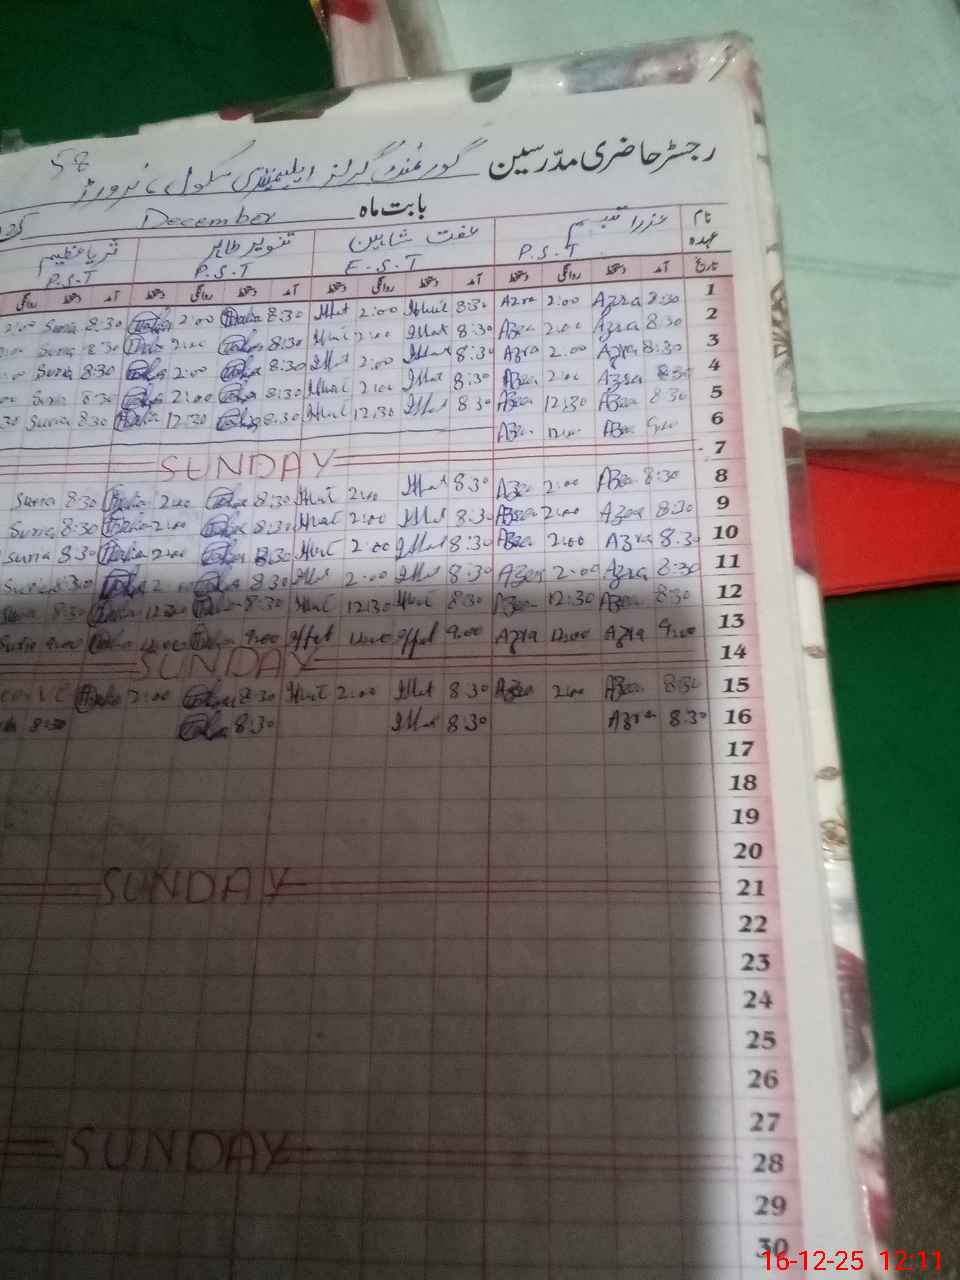 رجسٹر حاضری مدرسین گورنمنٹ گرلز ایلیمنٹری سکول
58
بابت ماہ December
نام عذرا تبسم عفت شاہین تنویر طاہر ثریا عظیم
عہدہ P.S.T E.S.T P.S.T P.S.T
تاریخ آمد دستخط روانگی دستخط آمد دستخط روانگی دستخط آمد دستخط روانگی دستخط آمد دستخط روانگی
1 8:30 Azra 2:00 Azra 8:30 Iffat 2:00 Iffat 8:30 Tahir 2:00 Tahir 8:30 Suria 2:00
2 8:30 Azra 2:00 Azra 8:30 Iffat 2:00 Iffat 8:30 Tahir 2:00 Tahir 8:30 Suria :00
3 8:30 Azra 2:00 Azra 8:30 Iffat 2:00 Iffat 8:30 Tahir 2:00 Tahir 8:30 Suria :00
4 8:30 Azra 2:00 Azra 8:30 Iffat 2:00 Iffat 8:30 Tahir 2:00 Tahir 8:30 Suria 00
5 8:30 Azra 12:30 Azra 8:30 Iffat 12:30 Iffat 8:30 Tahir 12:30 Tahir 8:30 Suria :30
6 9:00 Azra 12:00 Azra
7 SUNDAY
8 8:30 Azra 2:00 Azra 8:30 Iffat 2:00 Iffat 8:30 Tahir 2:00 Tahir 8:30 Suria
9 8:30 Azra 2:00 Azra 8:30 Iffat 2:00 Iffat 8:30 Tahir 2:00 Tahir 8:30 Suria
10 8:30 Azra 2:00 Azra 8:30 Iffat 2:00 Iffat 8:30 Tahir 2:00 Tahir 8:30 Suria
11 8:30 Azra 2:00 Azra 8:30 Iffat 2:00 Iffat 8:30 Tahir 2:00 Tahir 8:30 Suria
12 8:30 Azra 12:30 Azra 8:30 Iffat 12:30 Iffat 8:30 Tahir 12:30 Tahir 8:30 Suria
13 9:00 Azra 12:00 Azra 9:00 Iffat 12:00 Iffat 9:00 Tahir 12:00 Tahir 9:00 Suria
14 SUNDAY
15 8:30 Azra 2:00 Azra 8:30 Iffat 2:00 Iffat 8:30 Tahir 2:00 Tahir
16 8:30 Azra 8:30 Iffat 8:30 Tahir 8:30
17
18
19
20
21 SUNDAY
22
23
24
25
26
27
28 SUNDAY
29
30
16-12-25 12:11